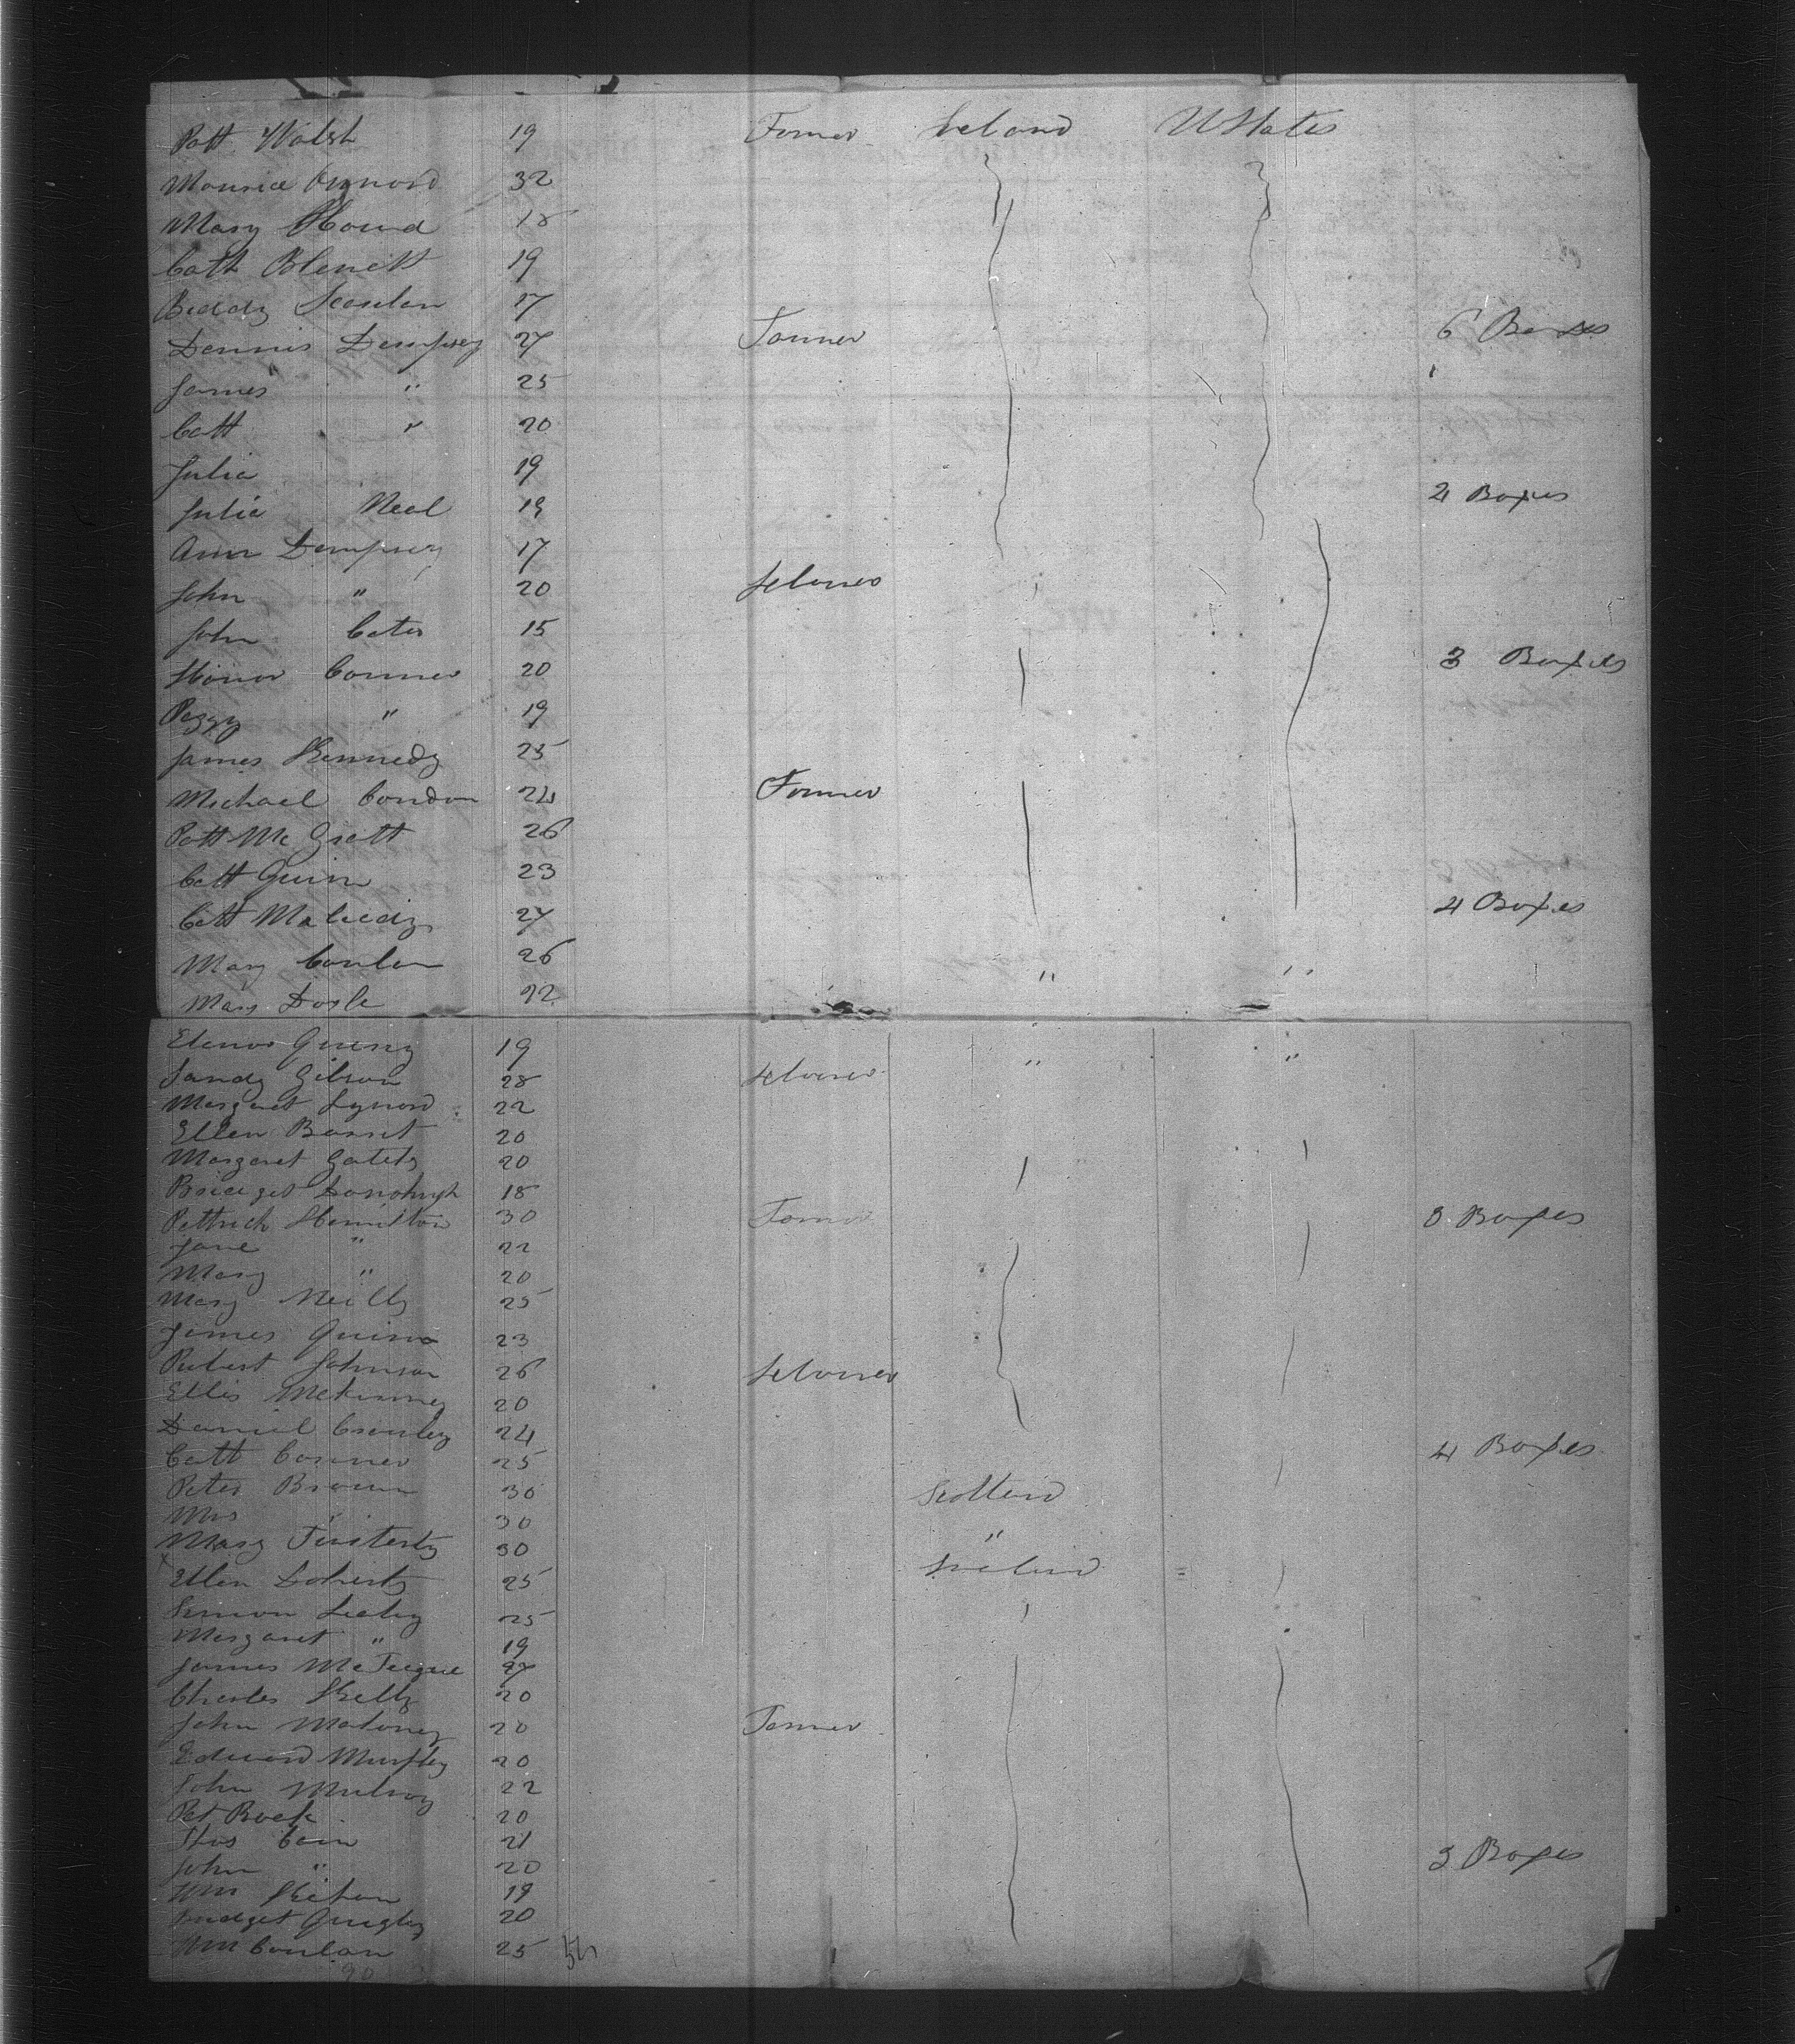 Patt Walsh 19 Farmer Ireland U States
Maurice 32
Mary 18
Cath 19
Biddy Scanlan 17
Dennis Dempsey 27 Farmer 6 Boxes
James " 25
Catt " 20
Julia 19
Julia Neal 19 4 Boxes
Ann Dempsey 17
John " 20
John 15
Honor Conner 20 3 Boxes
Peggy " 19
James Kennedy 25
Michael Condon 24 Farmer
Patt Mc Gratt 26
Catt Quinn 23
Catt 27 4 Boxes
Mary Conlan 26 " "
Mary Dosle 22
Elenor 19 " "
Sandy Gibson 28
Margaret 22
Ellen Barret 20
Margaret 20
Bridget Donohugh 18
Pattrick Hamilton 30 Farmer 3 Boxes
Jane " 22
Mary " 20
Mary Neilly 25
James Quinn 23
Robert Johnson 26
Ellis McKinney 20
Daniel Crowley 24
Catt Conner 25 4 Boxes
Peter Brown 30 Scotland
Mrs 30 "
Mary 30 Ireland
Ellen Doherty 25
Simon Leahy 25
Margaret " 19
James McTeague 27
Charles Kelly 20
John Maloney 20 Farmer
Edward Murphy 20
John Mulroy 22
Pat 20
Thos Cain 21
John " 20 3 Boxes
Wm 19
Bridget Quigley 20
Wm Conlan 25